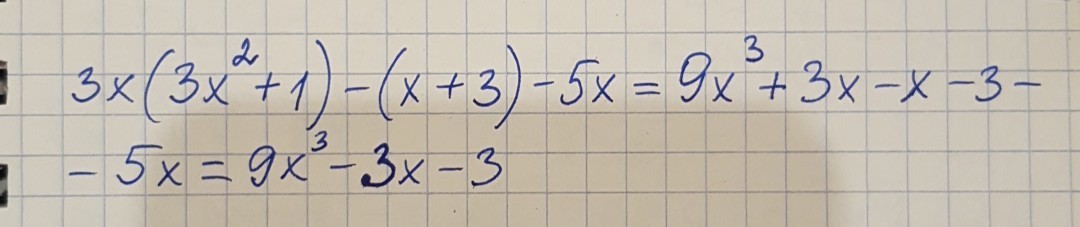 3x(3x²+1)-(x+3)-5x=9x³+3x-x-3-
-5x=9x³-3x-3